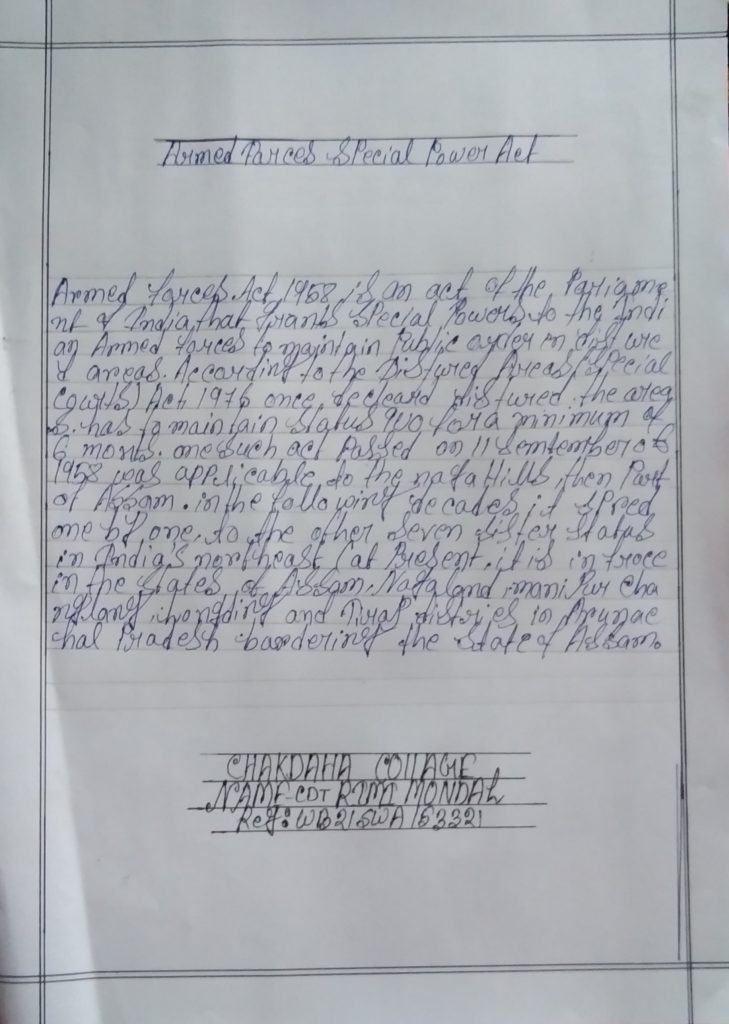 Armed Forces Special Power Act
Armed forces Act, 1958, is an act of the Parliame
nt of India, that grants special Powers to the Indi
an Armed forces to maintain Public order in disture
d areas. According to the Distured Areas (special
Courts) Act 1976 once decleard distured, the area
s. has to maintain status quo for a minimum of
6 monts. one such act Passed on 11 Semtember of
1958 was applicable to the naga Hills, then Part
of Assam. in the following decades it spred
one by one, to the other seven sister status
in India's northeast (at Present, it is in froce
in the states of Assam, Nagaland, manipur cha
nglang, longding and Tirap districs in Arunac
chal Pradesh bordering the state of Assam.
CHAKDAHA COllAGE
NAME-CDT RIMI MONDAL
Reg: WB21SWA153321